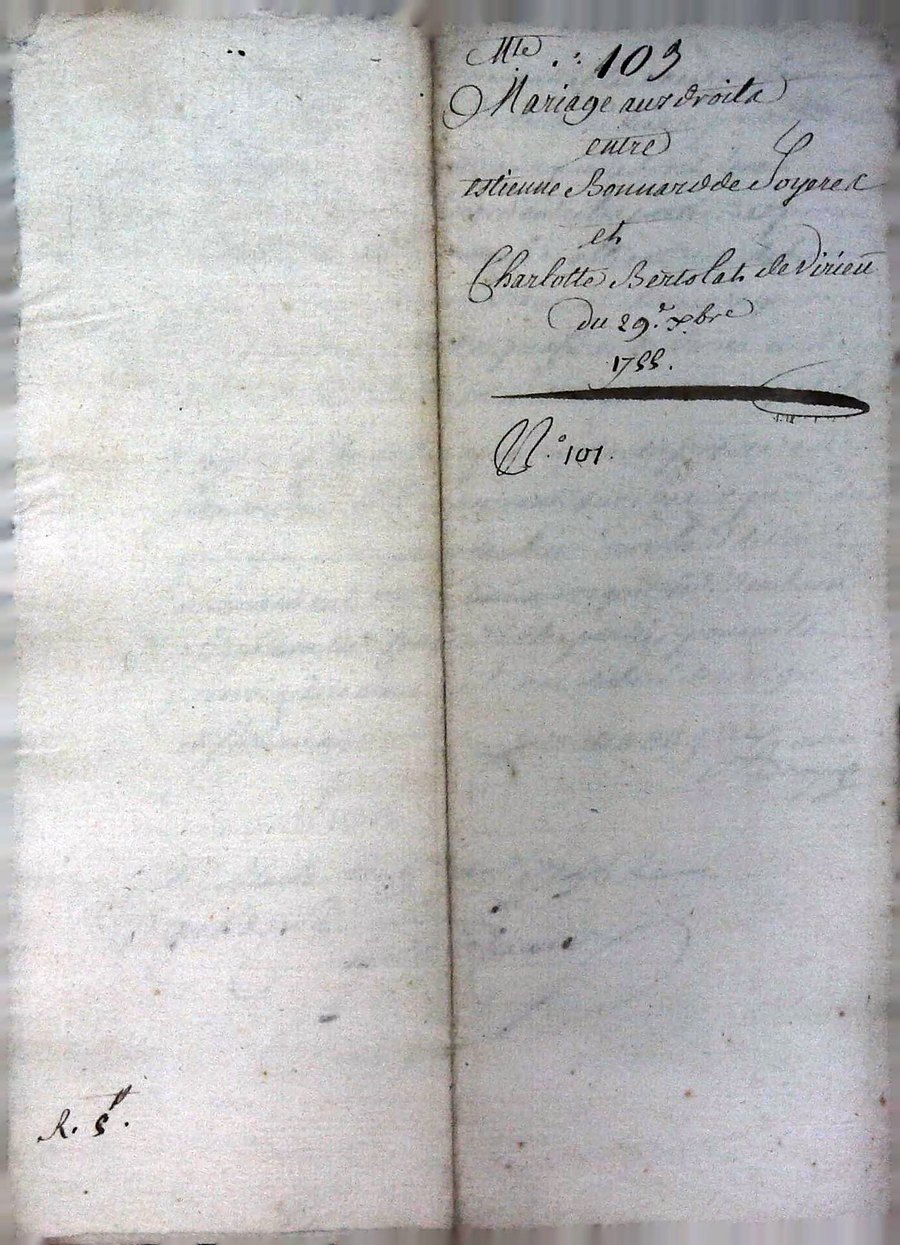 Mte 103
Mariage aux droits
entre
Estienne Bonnard de Soyeres
et
Charlotte Bertolat de Virieu
du 29e. xbre
1755.
N.° 101.
R. 5#.